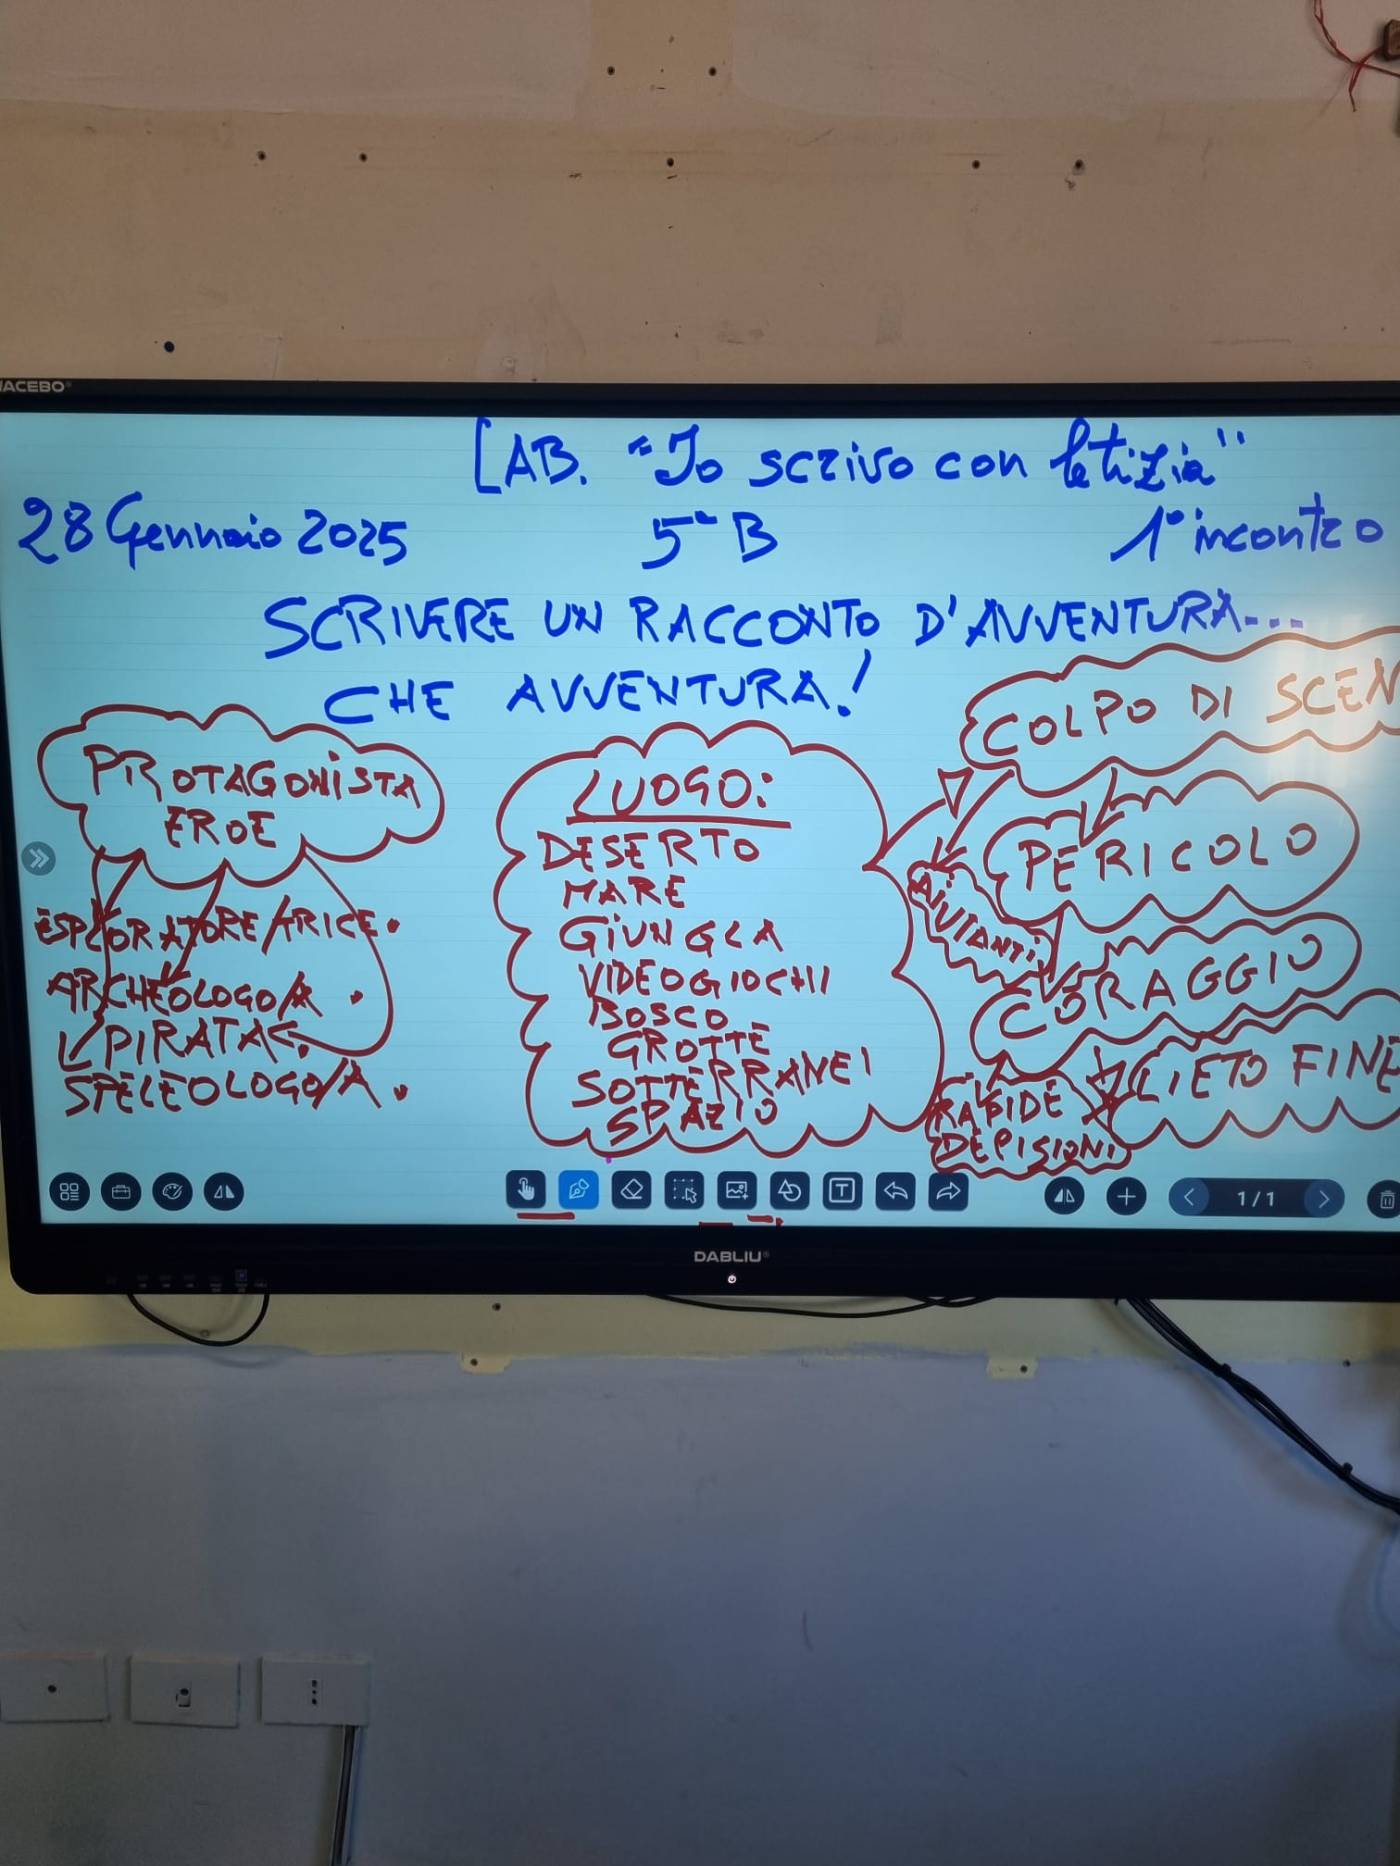 IACEBO
LAB. "Io scrivo con letizia"
28 Gennaio 2025 5ª B 1° incontro
SCRIVERE UN RACCONTO D'AVVENTURA...
CHE AVVENTURA!
PROTAGONISTA
EROE
ESPLORATORE/TRICE.
ARCHEOLOGO/A.
PIRATA
SPELEOLOGO/A.
LUOGO:
DESERTO
MARE
GIUNGLA
VIDEOGIOCHI
BOSCO
GROTTE
SOTTERRANEI
SPAZIO
COLPO DI SCEN
PERICOLO
AIUTANTI
CORAGGIO
RAPIDE
DECISIONI
LIETO FINE
1/1
DABLIU